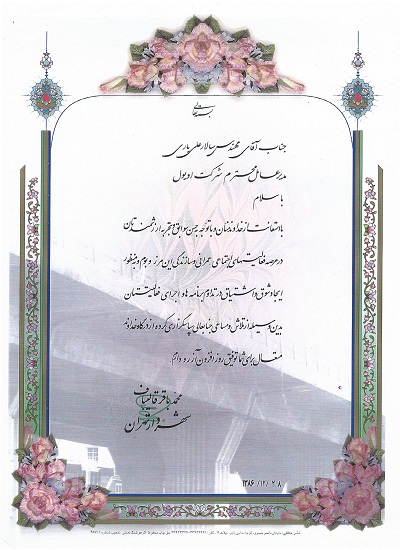 بسمه تعالی
جناب آقای مهندس سالار علی یاری
مدیر عامل محترم شرکت اودیول
با سلام
با استعانت از خداوند منان و با توجه به حسن سوابق و تجربه ارزشمندتان
در عرصه فعالیتهای اجتماعی عمرانی و سازندگی این مرز و بوم و بمنظور
ایجاد شوق و اشتیاق در تداوم برنامه ها و اجرای فعالیتتان
بدین وسیله از تلاش و مساعی جنابعالی سپاسگزاری کرده از درگاه خداوند
متعال برای شما توفیق روز افزون آرزو دارم.
محمد باقر قالیباف
شهردار تهران
۱۳۸۶/۱۲/۲۸